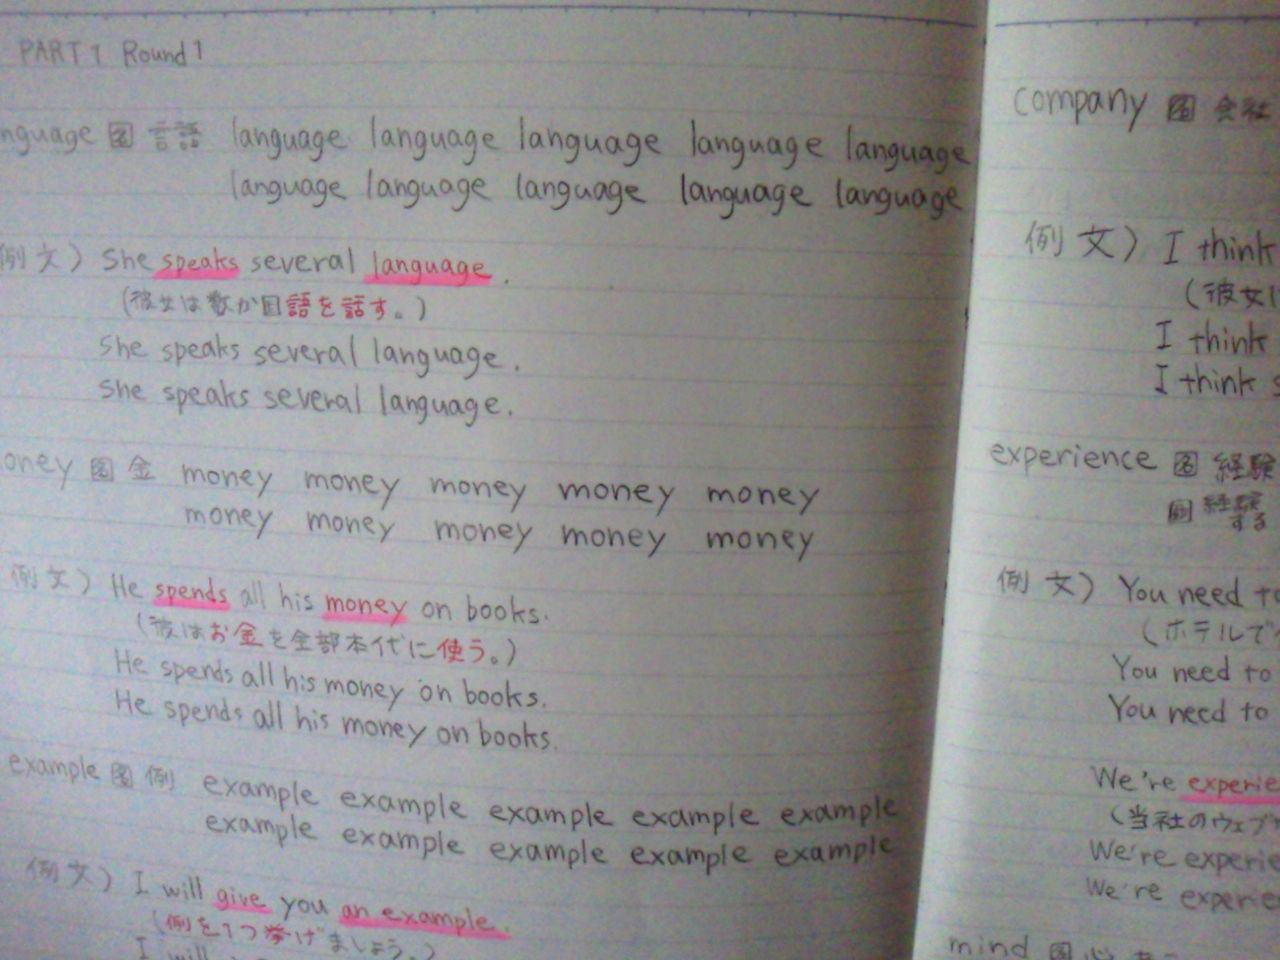 PART1 Round1
nguage 言語 language language language language language
language language language language language
例文) She speaks several language.
(彼女は数か国語を話す。)
She speaks several language.
She speaks several language.
oney 金 money money money money money
money money money money money
例文) He spends all his money on books.
(彼はお金を全部本代に使う。)
He spends all his money on books.
He spends all his money on books.
example 例 example example example example example
example example example example example
例文) I will give you an example.
(例を1つ挙げましょう。)
I will
company 会社
例文) I think
(彼女は
I think
I think s
experience 経験
経験
する
例文) You need to
(ホテルで
You need to
You need to
We're experie
(当社のウェブサ
We're experie
We're experie
mind 心